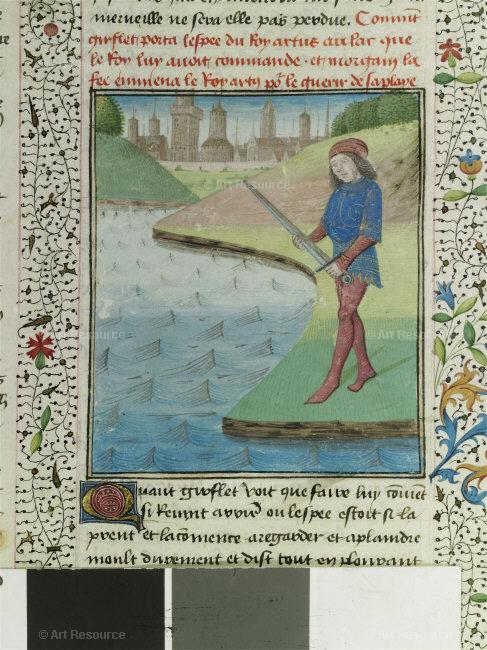 merveille ne sera elle pas perdue. Com̄ent
girflet porta lespee du Roy artus au lac que
le Roy luy auoit commande · et morgain la
fee enmena le Roy artus po᷑ le guerir de sa playe
Quant girflet voit que faire luy couiēt
si Reuint a
ou lespee estoit si la
prent et la cōmence a regarder et a plaindre
moult durement et dist tout en plourant
© Art Resource
© Art Resource
© Art Resource
© Art Resource
© Art Resource
© Art Resource
© Art Resource
© Art Resource